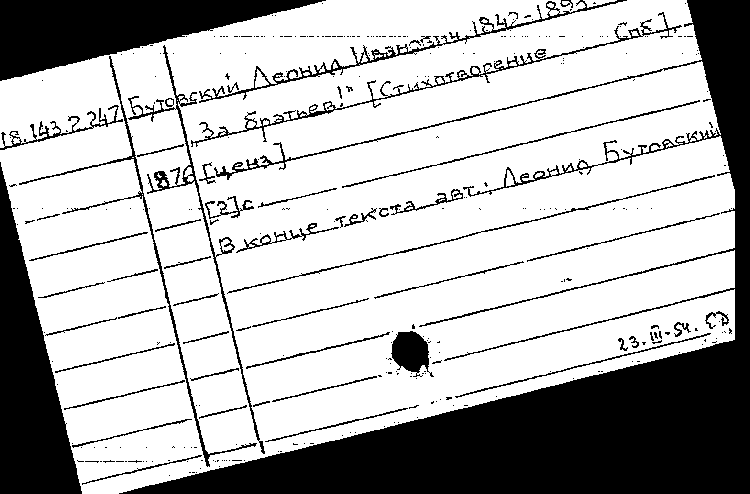 18.143.2.247 Бутовский, Леонид Иванович, 1842-
„За братьев!" [Стихотворение Спб].
1876 [ценз].
[2]с.
В конце текста авт.: Леонид Бутовский
23.III-54.